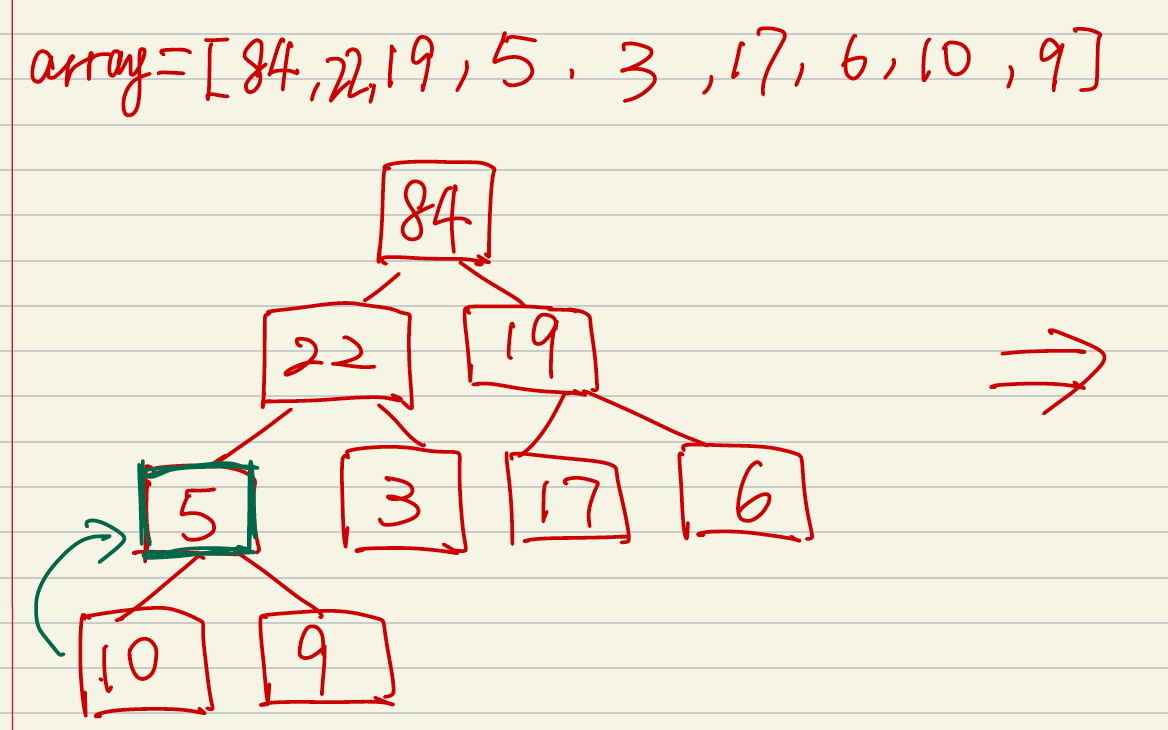 array=[84,22,19,5.3,17,6,10,9]
84
22 19
5 3 17 6
10 9